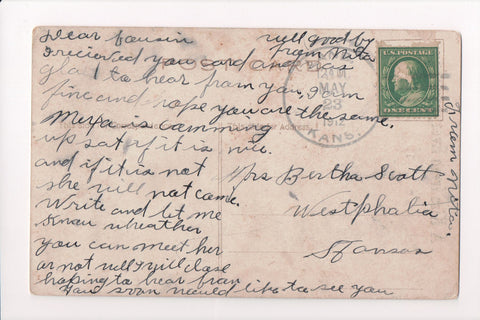 Dear Cousin
I recieved you card and was
glad to hear from you, I am
fine and hope you are the same.
Merja is camming
up sat if it is nice.
and if it is not
she will not came.
Write and let me
know wheather
you can meet her
or not well I will close
hoping to hear from
You soon would like to see you
well good by
from Nita
MAY
23
1912
KANS.
U.S. POSTAGE
ONE CENT
Mrs Bertha Scott
Westphalia
Kansas
From Nita.